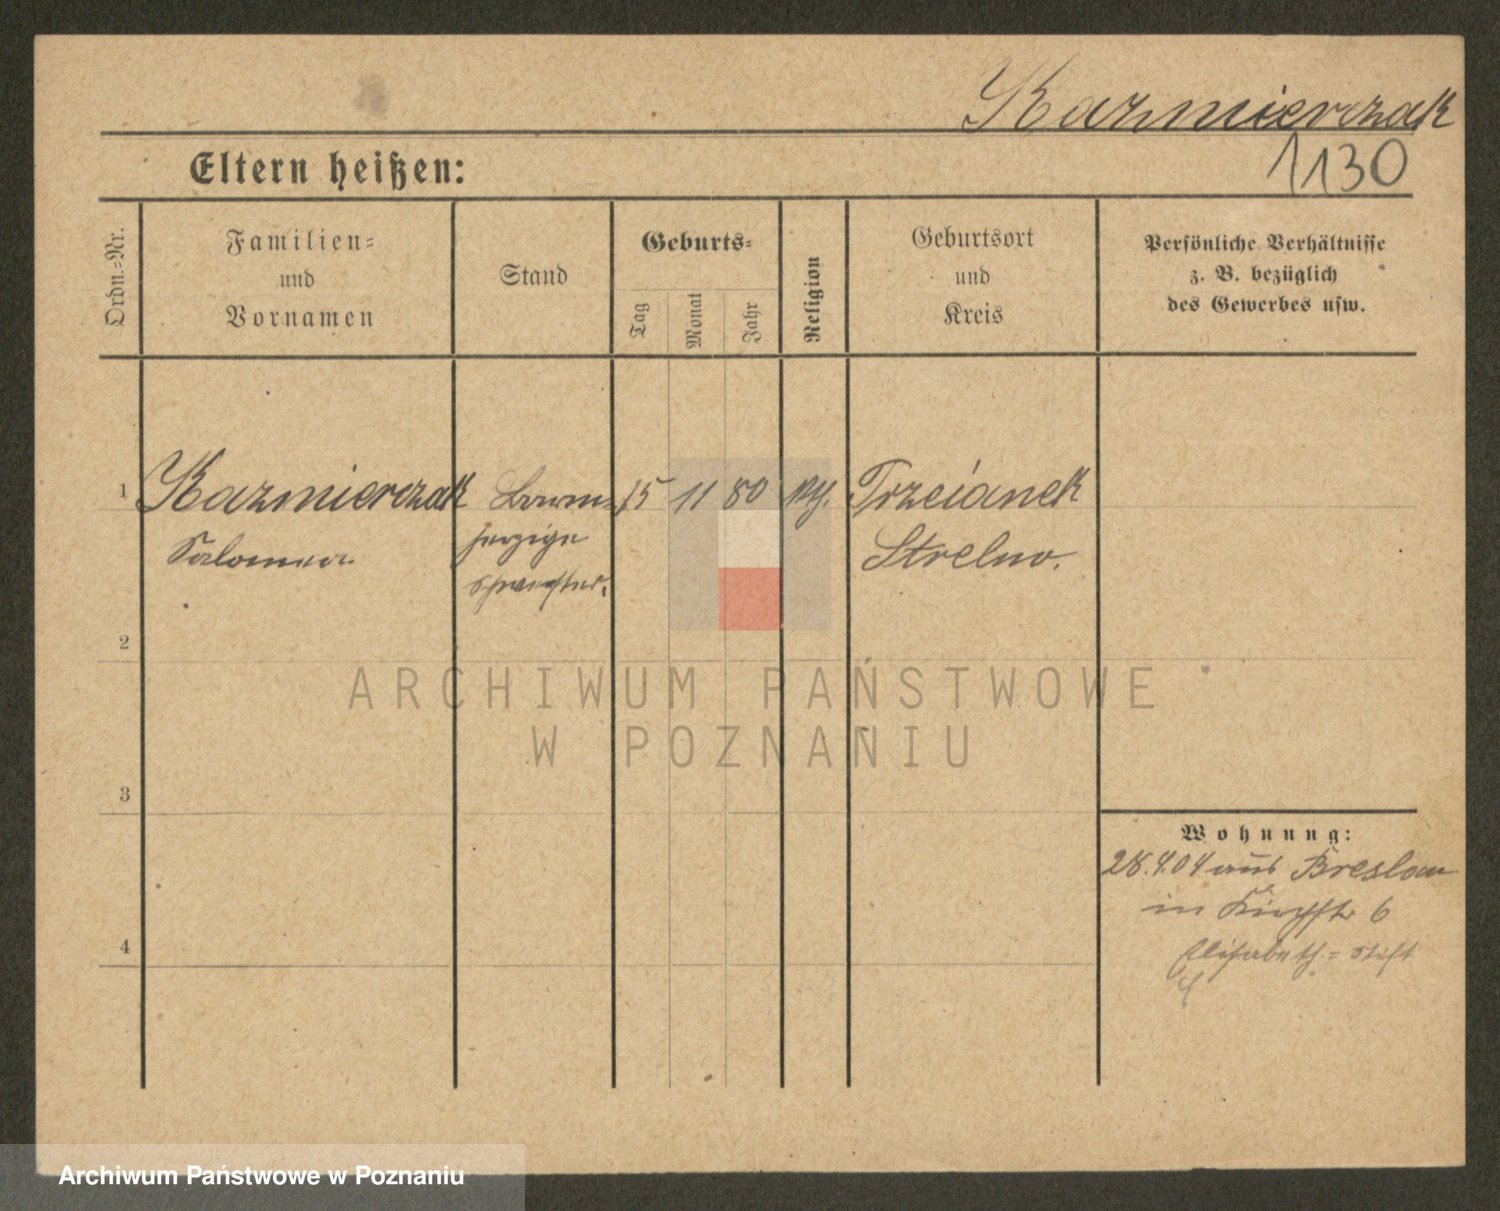 Kazmierczak
1130
Eltern heißen:
Ordn.=Nr.
Familien=
und
Vornamen
Stand
Geburts=
Tag
Monat
Jahr
Religion
Geburtsort
und
Kreis
Persönliche Verhältnisse
z. B. bezüglich
des Gewerbes usw.
1 Kazmierczak Barm= 15 11 80 Trzcianek
Salomea herzige Strelno.
Schwester.
2
ARCHIWUM PAŃSTWOWE
W POZNANIU
3
Wohnung:
28.4.04 aus Breslau
in Kirchstr 6
4 Elisabeth=Stift
Archiwum Państwowe w Poznaniu